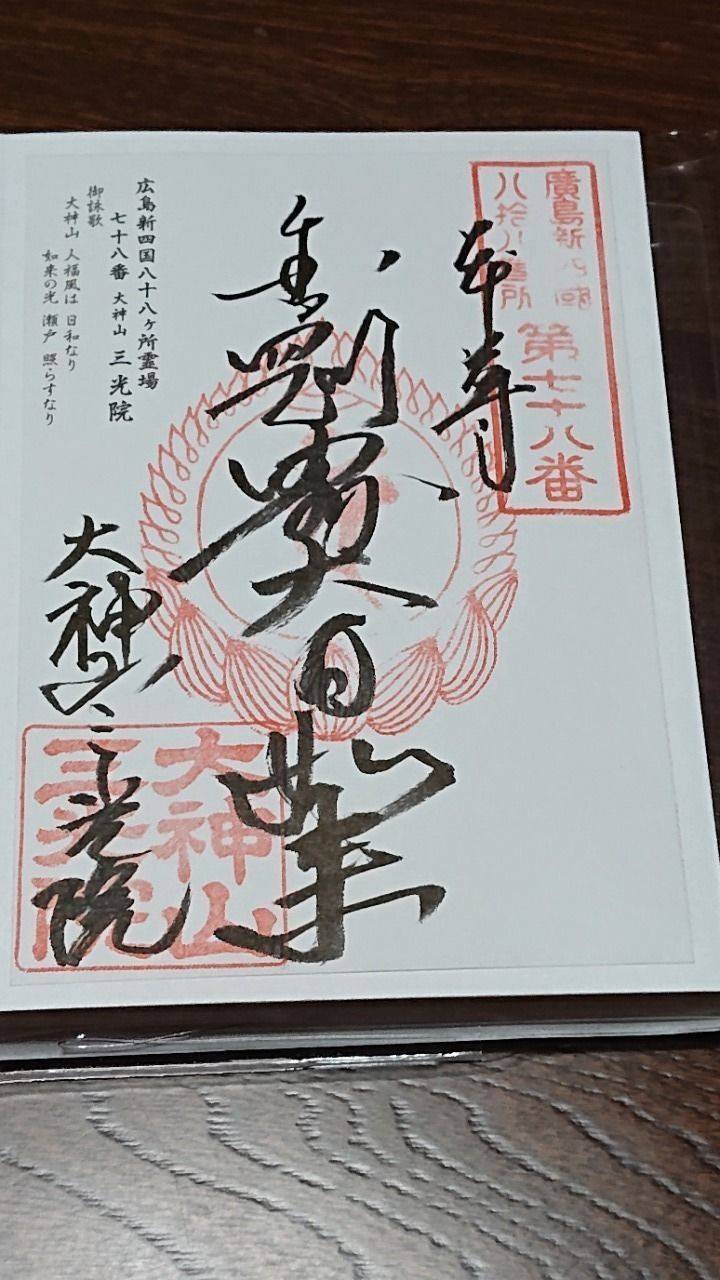 廣島新四國
八拾八箇所
第七十八番
本尊
大神山
三光院
大神山
三光院
広島新四国八十八ヶ所霊場
七十八番 大神山 三光院
御詠歌
大神山 人福風は 日和なり
如来の光 瀬戸 照らすなり